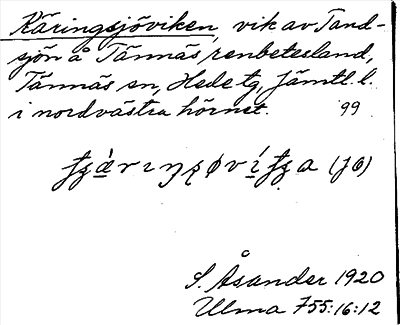 Käringsjöviken, vik av Tand-
sjön å Tännäs renbetesland,
Tännäs sn, Hede tg, Jämtl. l.
i nordvästra hörnet. 99
(J6)
S. Åsander 1920
Ulma 755:16:12